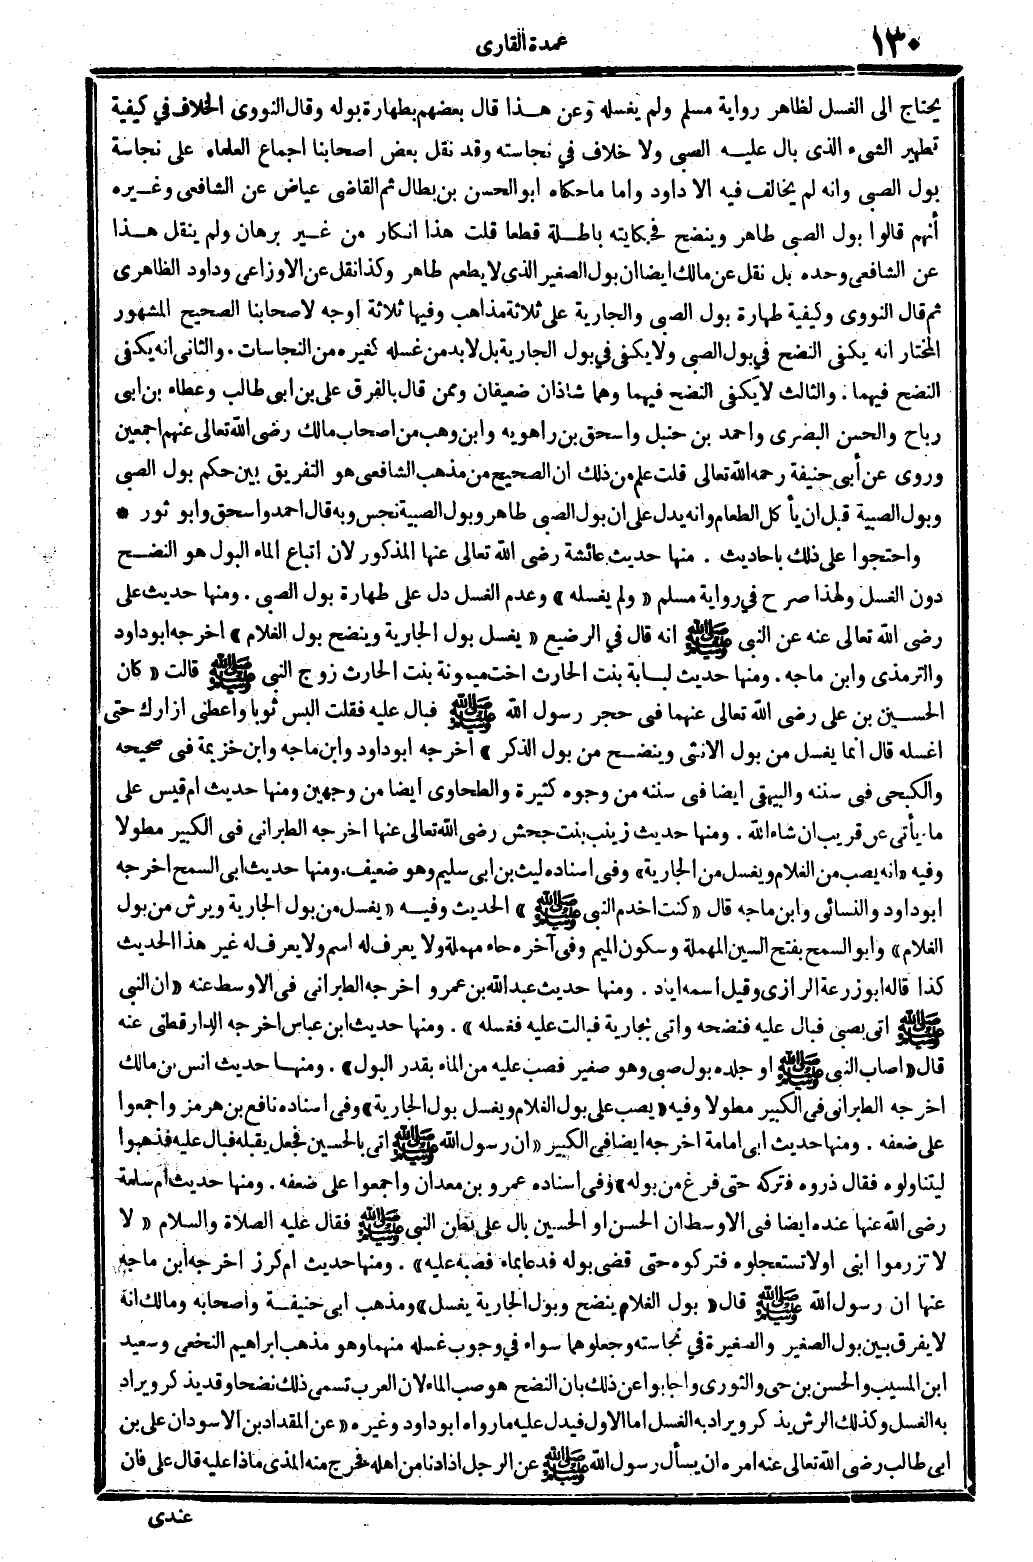 ١٣٠
عمدة القارى
يحتاج الى الغسل لظاهر رواية مسلم ولم يغسله وعن هـذا قال بعضهم بطهارة بوله وقال النووى الخلاف في كيفية
تطهير الشىء الذى بال عليـه الصبى ولا خلاف في نجاسته وقد نقل بعض اصحابنا اجماع العلماء على نجاسة
بول الصبى وانه لم يخالف فيه الا داود واما ماحكاه ابوالحسن بن بطال ثم القاضى عياض عن الشافعى وغـيره
أنهم قالوا بول الصبى طاهر وينضح فحكايته باطـلة قطعا قلت هذا انـكار من غـير برهان ولم ينقل هـذا
عن الشافعى وحده بل نقل عن مالك ايضا ان بول الصغير الذى لا يطعم طاهر وكذا نقل عن الاوزاعى وداود الظاهرى
ثم قال النووى وكيفية طهارة بول الصبى والجارية على ثلاثة مذاهب وفيها ثلاثة اوجه لاصحابنا الصحيح المشهور
المختار انه يكفى النضح في بول الصبى ولا يكفى في بول الجارية بل لابد من غسله كغيره من النجاسات . والثانى انه يكفى
النضح فيهما . والثالث لا يكفى النضح فيهما وهما شاذان ضعيفان وممن قال بالفرق على بن ابى طالب وعطاء بن ابى
رباح والحسن البصرى واحمد بن حنبل واسحق بن راهويه وابن وهب من اصحاب مالك رضى الله تعالى عنهم اجمعين
وروى عن أبى حنيفة رحمه الله تعالى قلت علم من ذلك ان الصحيح من مذهب الشافعى هو التفريق بين حكم بول الصبى
وبول الصبية قبل ان يأ كل الطعام وانه يدل على ان بول الصبى طاهر وبول الصبية نجس وبه قال احمد واسحق وابو ثور *
واحتجوا على ذلك باحاديث . منها حديث عائشة رضى الله تعالى عنها المذكور لان اتباع الماء البول هو النضـح
دون الغسل ولهذا صرح في رواية مسلم « ولم يغسله » وعدم الغسل دل على طهارة بول الصبى . ومنها حديث على
رضى الله تعالى عنه عن النبى ﷺ انه قال في الرضيع « يغسل بول الجارية وينضح بول الغلام » اخرجه ابوداود
والترمذى وابن ماجه . ومنها حديث لبـابة بنت الحارث اخت ميمونة بنت الحارث زوج النبى ﷺ قالت « كان
الحسـين بن على رضى الله تعالى عنهما فى حجر رسول الله ﷺ فبال عليه فقلت البس ثوبا واعطنى ازارك حتى
اغسله قال انما يغسل من بول الانثى وينضـح من بول الذكر » اخرجه ابوداود وابن ماجه وابن خزيمة فى صحيحه
والكبحى فى سننه والبيهقى ايضا فى سننه من وجوه كثيرة والطحاوى ايضا من وجهين ومنها حديث ام قيس على
ما يأتى عن قريب ان شاء الله . ومنها حديث زينب بنت جحش رضى الله تعالى عنها اخرجه الطبرانى فى الكبير مطولا
وفيه «انه يصب من الغلام ويغسل من الجارية» وفى اسناده ليث بن ابى سليم وهو ضعيف . ومنها حديث ابى السمح اخرجه
ابوداود والنسائى وابن ماجه قال «كنت اخدم النبى ﷺ » الحديث وفيـه « يغسل من بول الجارية ويرش من بول
الغلام» وابو السمح بفتح السين المهملة وسكون الميم وفى آخره حاء مهملة ولا يعرف له اسم ولا يعرف له غير هذا الحديث
كذا قاله ابوزرعة الرازى وقيل اسمه اياد . ومنها حديث عبدالله بن عمرو اخرجه الطبرانى فى الاوسط عنه « ان النبى
ﷺ اتى بصبى فبال عليه فنضحه واتى بجارية فبالت عليه فغسله » . ومنها حديث ابن عباس اخرجه الدارقطنى عنه
قال « اصاب النبى ﷺ او جلده بول صبى وهو صغير فصب عليه من الماء بقدر البول » . ومنهـا حديث انس بن مالك
اخرجه الطبرانى فى الكبير مطولا وفيه « يصب على بول الغلام ويغسل بول الجارية » وفى اسناده نافع بن هرمز واجمعوا
على ضعفه . ومنها حديث ابى امامة اخرجه ايضا فى الكبير « ان رسول الله ﷺ اتى بالحسين فجعل يقبله فبال عليه فذهبوا
ليتناولوه فقال ذروه فتركه حتى فرغ من بوله » وفى اسناده عمرو بن معدان واجمعوا على ضعفه . ومنها حديث أم سلمة
رضى الله عنها عنده ايضا فى الاوسط ان الحسن او الحسين بال على بطن النبى ﷺ فقال عليه الصلاة والسلام « لا
لا تزرموا ابنى اولا تستعجلوه فتركوه حتى قضى بوله فدعا بماء فصبه عليه » . ومنها حديث ام كرز اخرجه ابن ماجه
عنها ان رسول الله ﷺ قال « بول الغلام ينضح وبول الجارية يغسل » ومذهب ابى حنيفـة وأصحابه ومالك انه
لا يفرق بين بول الصغير والصغيرة في نجاسته وجعلوهما سواء في وجوب غسله منهما وهو مذهب ابراهيم النخعى وسعيد
ابن المسيب والحسن بن حى والثورى واجابوا عن ذلك بان النضح هو صب الماء لان العرب تسمى ذلك نضحا وقد يذكر ويراد
به الغسل وكذلك الرش يذكر ويراد به الغسل اما الاول فيدل عليه ما رواه ابو داود وغيره « عن المقداد بن الاسود ان على بن
ابى طالب رضى الله تعالى عنه امره ان يسأل رسول الله ﷺ عن الرجل اذا دنا من اهله فخرج منه المذى ماذا عليه قال على فان
عندى